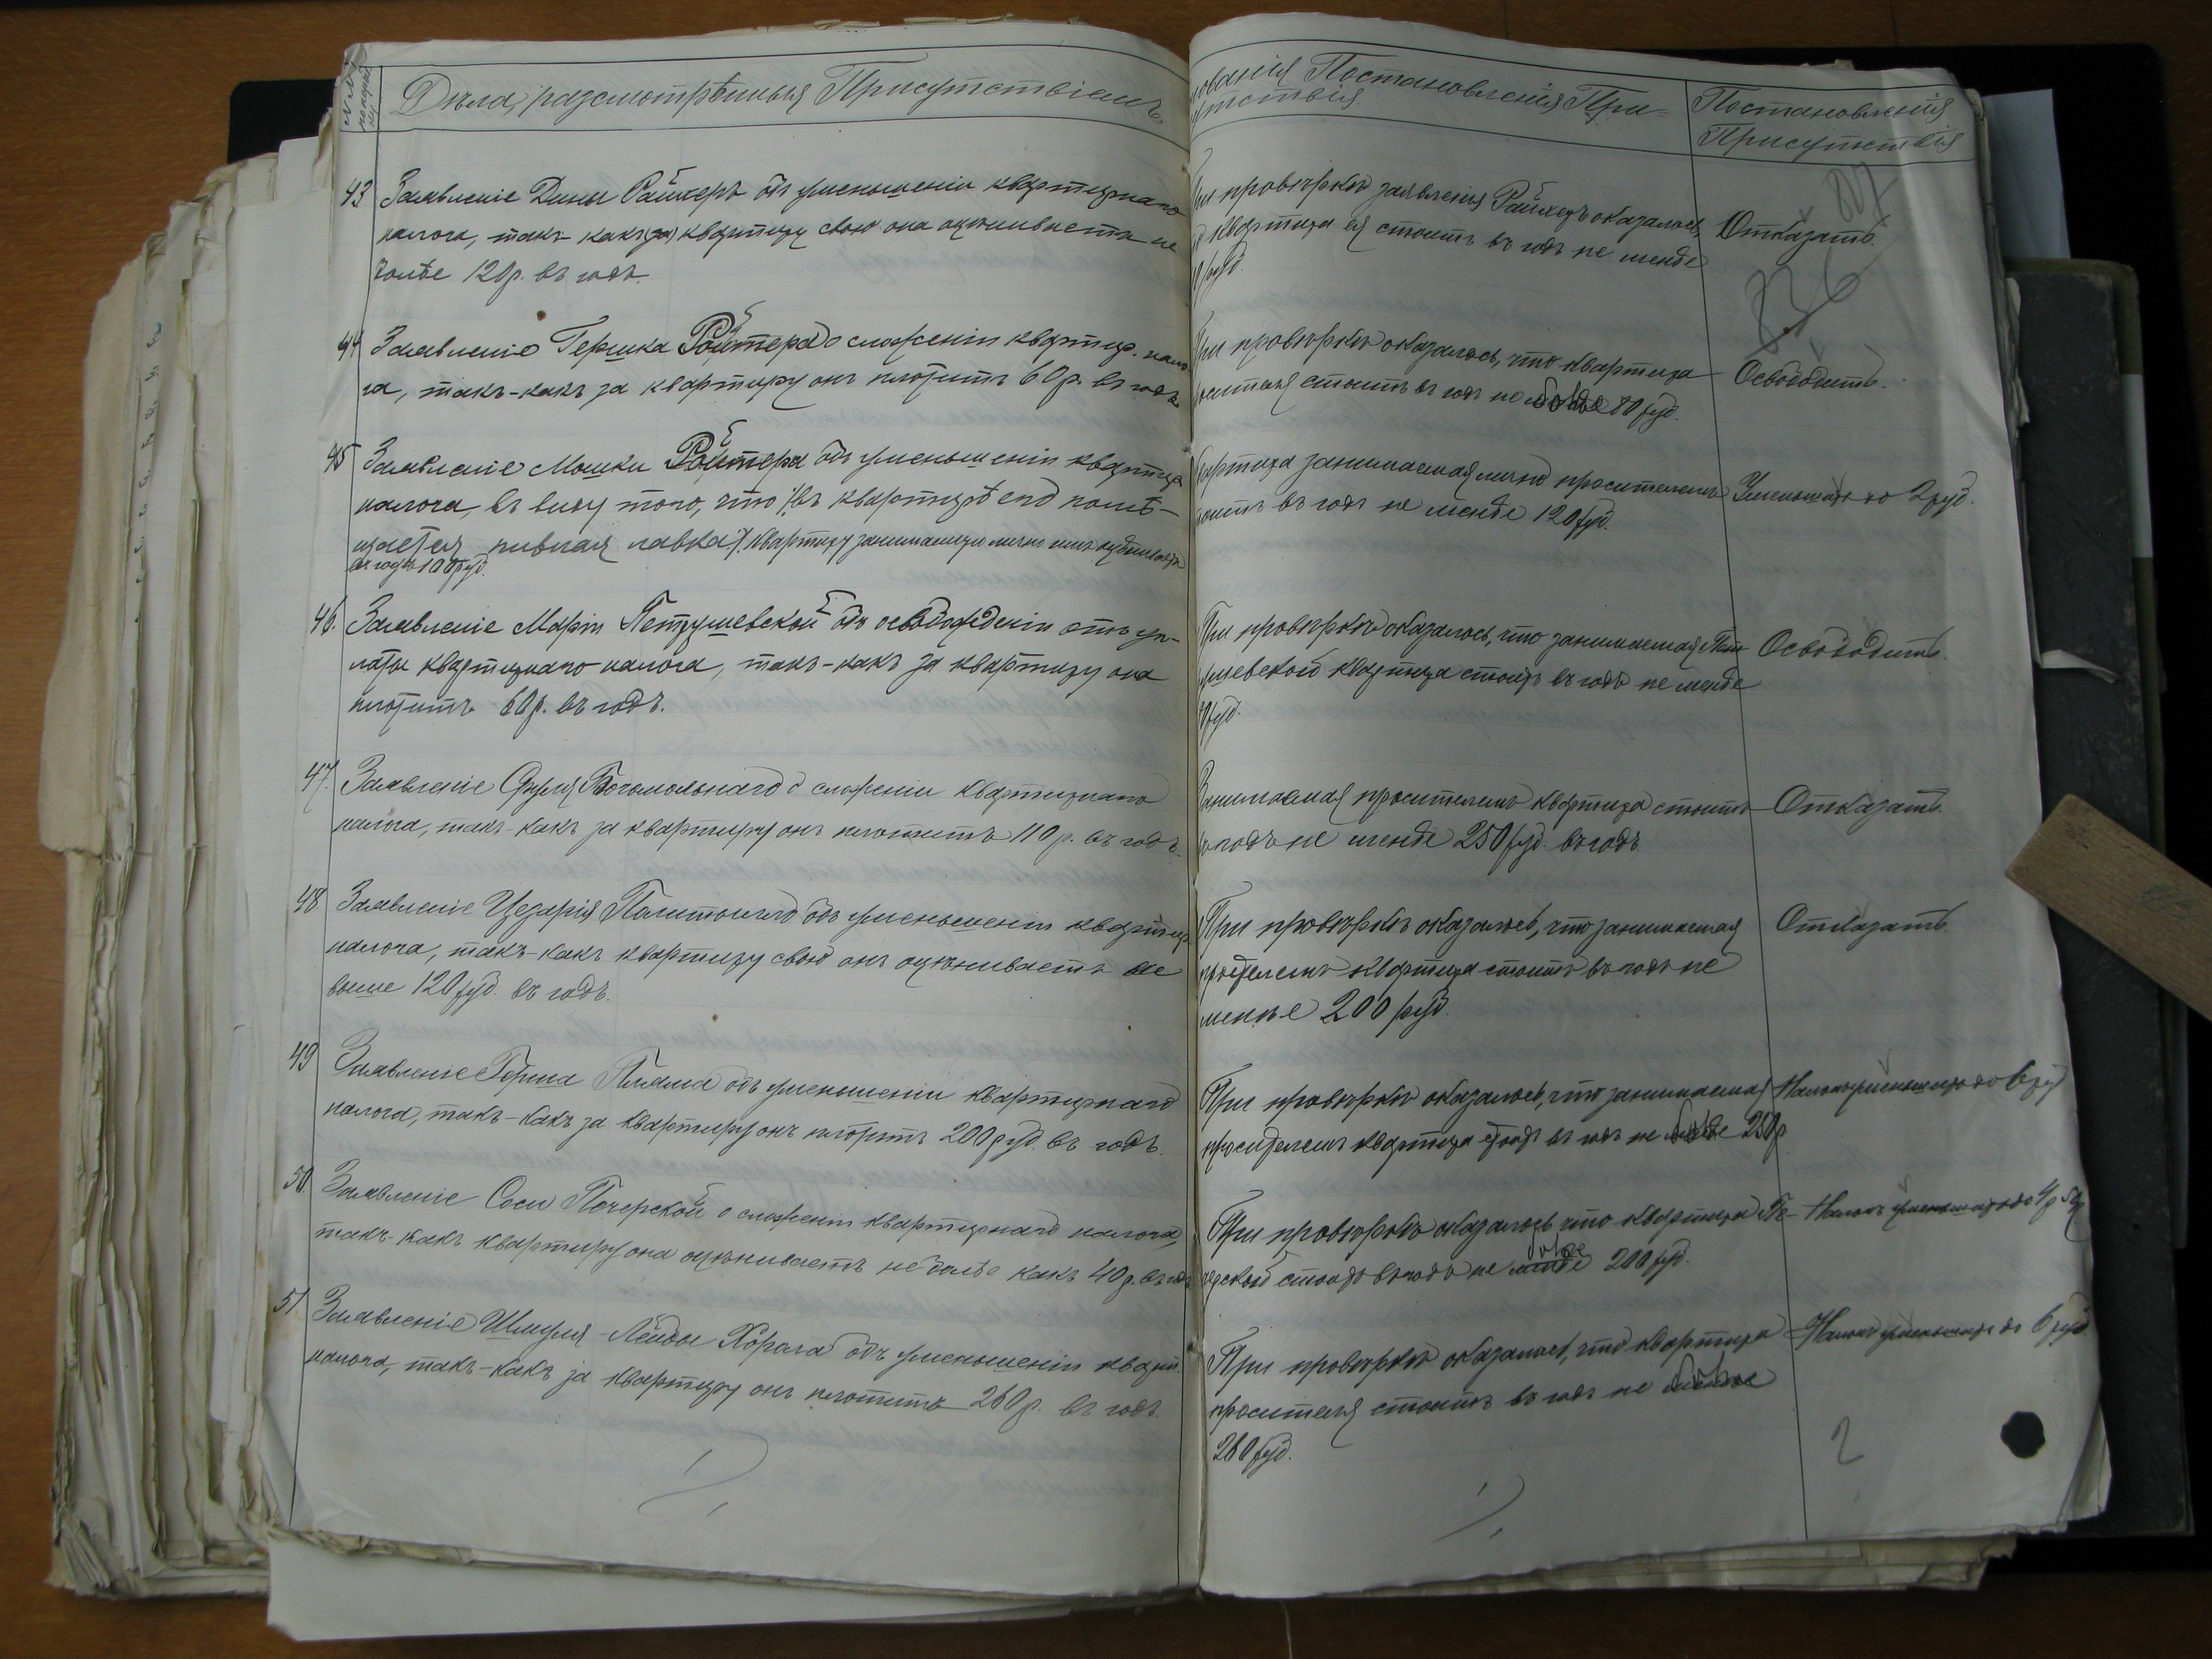 №№ по порядку
Дѣла, разсмотрѣнныя Присутствіемъ.
43 Заявленіе Дины Райхеръ объ уменьшеніи квартирнаго
налога, такъ какъ (за) квартиру свою она оцѣниваетъ не
болѣе 120 р. въ годъ.
44 Заявленіе Гершка Ройтера о сложеніи квартир. нало
га, такъ-какъ за квартиру онъ платитъ 60 р. въ годъ.
45 Заявленіе Мошки Ройтера объ уменьшеніи квартир
налога, въ виду того, что въ квартирѣ его помѣ-
щается пивная лавка, квартиру занимаемую лично имъ оцѣниваетъ
въ годъ 100 руб.
46. Заявленіе Маріи Петрушевской объ освобожденіи отъ уп-
латы квартирнаго налога, такъ-какъ за квартиру она
платитъ 60 р. въ годъ.
47. Заявленіе Богомольнаго о сложеніи квартирнаго
налога, такъ-какъ за квартиру онъ платитъ 110 р. въ годъ.
48 Заявленіе Цезарія объ уменьшеніи квартир
налога, такъ-какъ квартиру свою онъ оцѣниваетъ не
выше 120 руб. въ годъ.
49 Заявленіе Герша объ уменьшеніи квартирнаго
налога, такъ-какъ за квартиру онъ платитъ 200 руб. въ годъ.
50. Заявленіе Соси Печерской о сложеніи квартирнаго налога,
такъ-какъ квартиру она оцѣниваетъ не болѣе какъ 40 р. въ годъ
51. Заявленіе Шмуля-Лейбы Хорага объ уменьшеніи кварт.
налога, такъ-какъ за квартиру онъ платитъ 260 р. въ годъ.
ованія Постановленія При=
утствія
Постановленія
Присутствія
807
836
ри провѣркѣ заявленія Райхеръ оказалось,
квартира ея стоитъ въ годъ не менѣе
руб.
Отказать.
При провѣркѣ оказалось, что квартира
росителя стоитъ въ годъ не болѣе 80 руб.
Освободить.
вартира занимаемая лично просителемъ
тоитъ въ годъ не менѣе 120 руб.
Уменьшить до 2 руб.
При провѣркѣ оказалось, что занимаемая Пет
рушевской квартира стоитъ въ годъ не менѣе
руб.
Освободить.
Занимаемая просителемъ квартира стоитъ
въ годъ не менѣе 250 руб. въ годъ.
Отказать.
При провѣркѣ оказалось, что занимаемая
просителемъ квартира стоитъ въ годъ не
менѣе 200 руб.
Отказать.
При провѣркѣ оказалось, что занимаемая
просителемъ квартира стоитъ въ годъ не болѣе 250 р.
Налогъ уменьшить до 6 руб
При провѣркѣ оказалось что квартира Пе-
черской стоитъ въ годъ не менѣе болѣе 200 руб.
Налогъ уменьшить до 4 р 50 к
При провѣркѣ оказалось, что квартира
просителя стоитъ въ годъ не болѣе
260 руб.
Налогъ уменьшить до 6 руб.
2